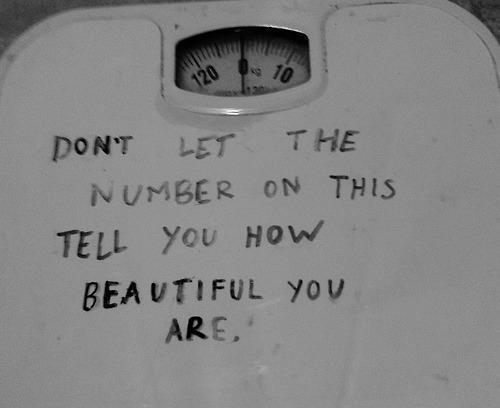 120 0 kg 10
DON'T LET THE
NUMBER ON THIS
TELL YOU HOW
BEAUTIFUL YOU
ARE.